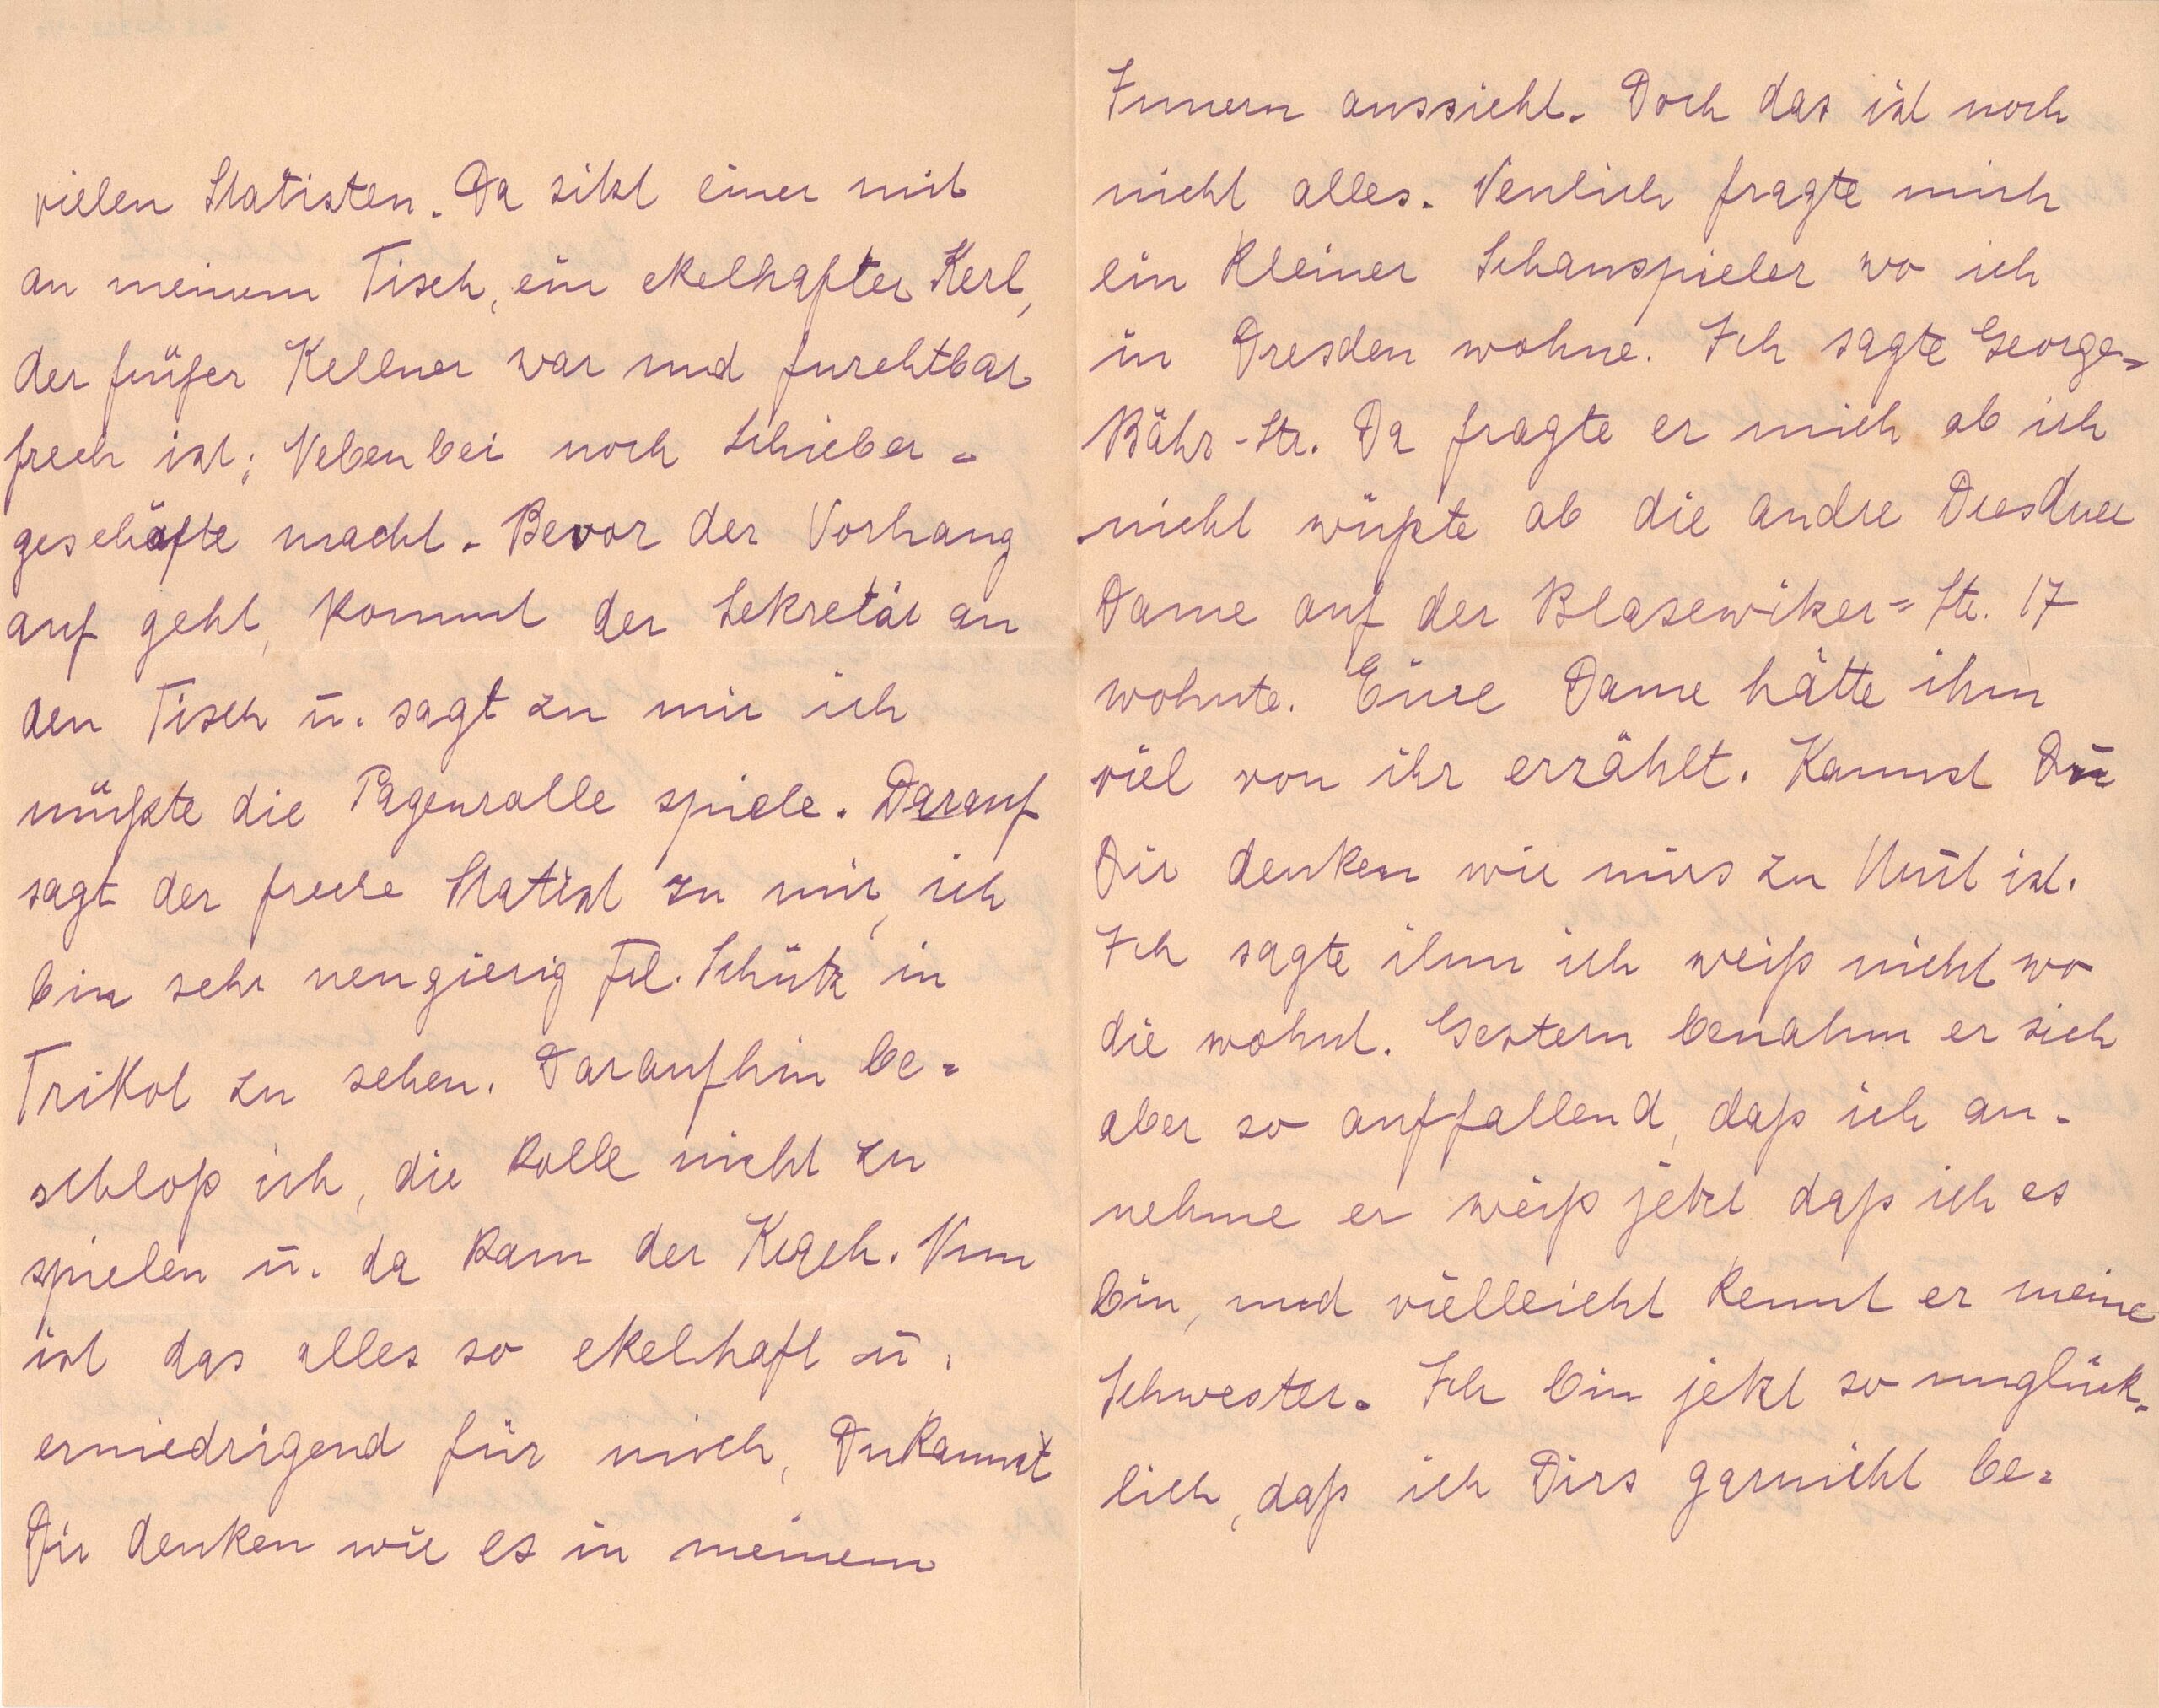 vielen Statisten. Da sitzt einer mit
an meinem Tisch, ein ekelhafter Kerl,
der früher Kellner war und furchtbar
frech ist; Nebenbei noch Schieber-
geschäfte macht. Bevor der Vorhang
auf geht, kommt der Sekretär an
den Tisch u. sagt zu mir ich
müßte die Pagenrolle spiele. Darauf
sagt der freche Statist zu mir, ich
bin sehr neugierig Frl. Schütz in
Trikot zu sehen. Daraufhin be-
schloß ich, die Rolle nicht zu
spielen u. da kam der Krach. Nun
ist das alles so ekelhaft u.
erniedrigend für mich, Du kannst
Dir denken wie es in meinem
Innern aussieht. Doch das ist noch
nicht alles. Neulich fragte mich
ein kleiner Schauspieler wo ich
in Dresden wohne. Ich sagte George-
Bähr-Str. Da fragte er mich ob ich
nicht wüßte ob die andre Dresdner
Dame auf der Blasewitzer-Str. 17
wohnte. Eine Dame hätte ihm
viel von ihr erzählt. Kannst Du
Dir denken wie mirs zu Mut ist.
Ich sagte ihm ich weiß nicht wo
die wohnt. Gestern benahm er sich
aber so auffallend, daß ich an-
nehme er weiß jetzt daß ich es
bin, und vielleicht kennt er meine
Schwester. Ich bin jetzt so unglück-
lich, daß ich Dirs garnicht be-